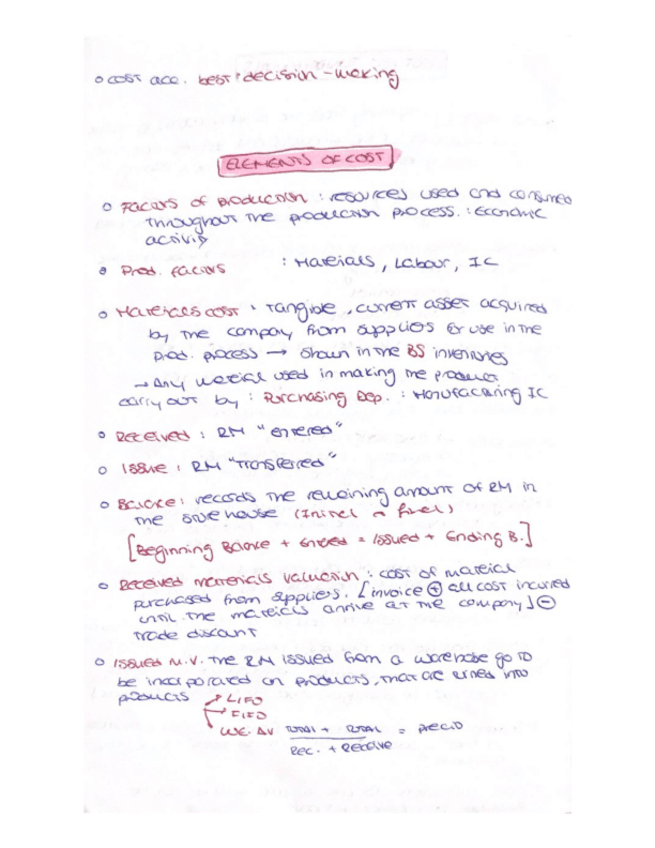 o COST acc. best decision-making
ELEMENTS OF COST
o Factors of production : resources used and consumed
throughout the production process. : Economic
activity
o Prod. factors : Materials, Labour, IC
o Materials cost : Tangible, current asset acquired
by the company from suppliers for use in the
prod. process → shown in the BS inventories
→ Any material used in making the product
carry out by : Purchasing Dep. : Manufacturing IC
o Received : RM "entered"
o Issue : RM "Transferred"
o Balance : records the remaining amount of RM in
the storehouse (Initial final)
[Beginning Balance + Entered = Issued + Ending B.]
o Received materials valuation : cost of material
purchased from suppliers. [invoice ⊕ all cost incurred
until the materials arrive at the company] ⊖
trade discount
o Issued M.V. The RM issued from a warehouse go to
be incorporated on products, that are turned into
products → LIFO
→ FIFO
→ WE. AV TOTAL + TOTAL = precio
Rec. + Receive